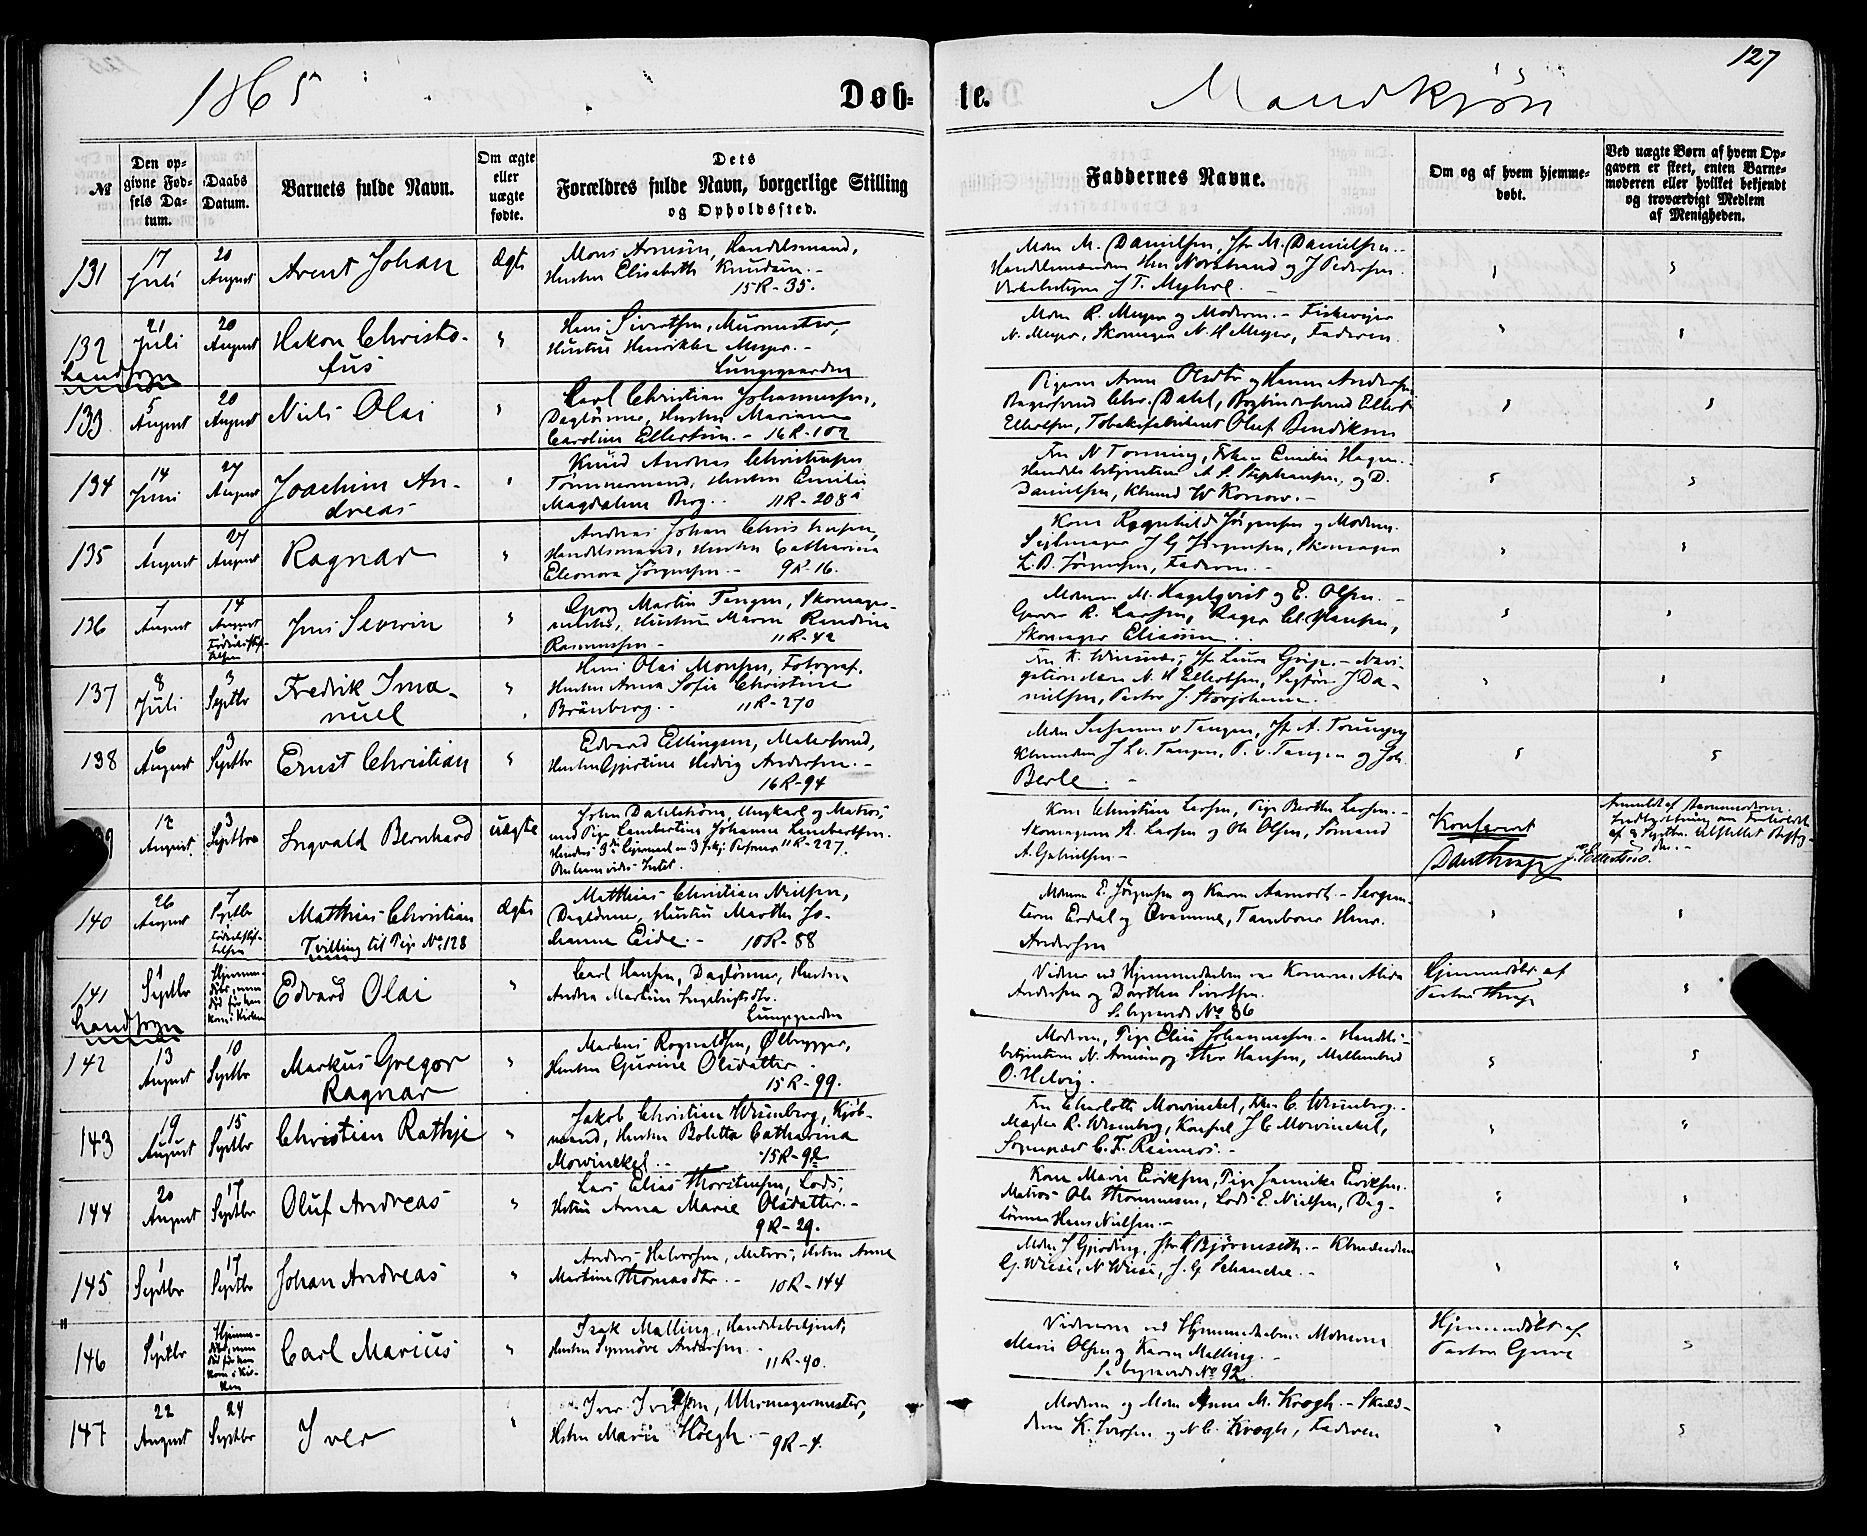 127
1865
Døb-
te.
Mandkjøn
№
Den op-
givne Fød-
sels Da-
tum.
Daabs
Datum.
Barnets fulde Navn.
Om ægte
eller
uægte
fødte.
Dets
Forældres fulde Navn, borgerlige Stilling
og Opholdssted.
Faddernes Navne.
Om og af hvem hjemme-
døbt.
Ved uægte Børn af hvem Op-
gaven er skeet, enten Barne-
moderen eller hvilket bekjendt
og troværdigt Medlem
af Menigheden.
131
17
Juli
20
August
Arent Johan
Ægte
Mons Arnesen, Handelsmand,
Hustru Elisabeth Knudsen.-
15R-35.
M. Danielsen, M. Danielsen.-
Handelsmændene Nordstrand og J Pedersen.
J T. Myhre.
132
Landsogn
21
Juli
20
August
Hakon Christo-
fus
Hans Sivertsen, Murmester,
Hustru Henrikke Meyer.-
Lungegaarden
R. Meyer og Moderen.- Fiskevejer
N. Meyer, Skomager N. H Meyer, Faderen.
133
5
August
20
August
Niels Olai
Carl Christian Johannessen,
Dagtønner, Hustru Mariane
Caroline Ellertsen.- 16R-102
Pigerne Anne Olsdtr og Hanna Andersen
Bagersvend Chr. Dahl, Bogbindersvend Ellert
Ellertsen, Tobaksfabrikant Oluf Bendiksen
134
14
Juni
27
August
Joachim An-
dreas
Knud Andreas Christensen
Tømmermand, Hustru Emilie
Magdalene Berg.. 11R-208a
Fru N Tonning, Frken Emilie Hagen.
Handelsbetjentene A S. Stephansen, og D.
Danielsen, W Konow.-
135
1
August
27
August
Ragnar
Andreas Johan Christensen,
Handelsmand, Hustru Catharina
Eleonora Jørgensen.- 9R-16.
Kone Ragnhild Jørgensen og Moderen.
Sejlmager J G Jørgensen, Skomager
L. B. Jørgensen, Faderen.-
136
7
August
14
August
Fødselsstif-
telsen
Jens Severin
Georg Martin Tangen, Skomager-
mester, Hustru Maren Rendine
Rasmussen - 11R-42
M. Hagelqvist og E. Olsen.-
R. Larsen, Bager Cl. Hansen,
Skomager Eliassen..
137
8
Juli
3
Septbr
Fredrik Ima-
nuel
Hans Olai Monsen, Fotograf,
Hustru Anna Sofie Christine
Brünberg.- 11R-270
Fru K. Wiesnæs, Laura Grip.- Navi-
N. H Ellertsen, J Da-
nielsen, Pastor J. Storjohann.
138
6
August
3
Septbr
Ernst Christian
Edvard Ellingsen, Malersvend,
Hustru Gjertine Hedvig Andersen.-
16R-94
Susanne v Tangen, A. Tonning
J L v. Tangen, P. v. Tangen og Joh.
Berle.-
12
August
3
Septbr
Ingvald Bernhard
uægte
John Dahlstrøm, Ungkarl og Matros,
med Pige Lambertine Johanne Lambertsen.
11R-227.
Kone Christine Larsen, Pige Berthe Larsen.-
Skomagerne A. Larsen og Ole Olsen, Sømand
A. Gabrielsen-
Konfereret
Daae Thrap
Anmeldt af Barnemoderen.
140
26
August
7
Septbr
Fødselsstif-
telsen
Matthias Christian
Tvilling til Pige No 128
Ægte
Matthias Christian Nielsen,
Dagtønner, Hustru Marthe Jo-
hanne Eide.- 10R-88
E. Jørgensen og Karen Aamodt.- Sergen-
terne Erdal og Evanne, Tambour Henr.
Andersen
141
Landsogn
1
Septbr
Hjemme-
døbt, men
død før han
kom i Kirken
Edvard Olai
Carl Hansen, Dagtønner, Hustru
Andrea Martine Ingebrigtsdtr.
Lungegaarden
Vidner ved Hjemmedaaben var Konerne Alida
Andersen og Dorthea Sivertsen.
Se begravede No 86
Hjemmedøbt af
Pastor Thrap
142
13
August
10
Septbr
Markus Gregor
Ragnar
Markus Rognaldsen, Ølbrygger,
Hustru Gurine Olsdatter.-
15R-99.
Moderen, Pige Elise Johannessen.- Handels-
betjentene N. Arnesen og Thor Hansen,
O. Helvig.
143
19
August
15
Septbr
Christian Rathje
Jakob Christian Wesenberg, Kjøb-
mand, Hustru Boletta Catharina
Mowinckel.- 15R-92
Fru Charlotte Mowinckel, C. Wesenberg.-
R. Wesenberg, Konsul J C Mowinckel,
Sognepræst C. F. Reimers.-
144
20
August
17
Septbr
Oluf Andreas
Lars Elias Thorstensen, Lods,
Hustru Anna Marie Olsdatter.-
9R-29.
Kone Marie Eriksen, Pige Jannike Eriksen.
Matros Ole Thommesen, Lods E. Nielsen, Dag-
tønner Hans Nielsen.-
145
1
Septbr
17
Septbr
Johan Andreas
Anders Halvorsen, Matros, Hustru Anne
Martine Thomasdtr.- 10R-144
J Gjerding, Bjørnseth.-
G. Wiese, N Wiese, J. G Schanche.-
146
1
Septbr
Hjemme-
døbt, men
død før han
kom i Kir-
ken
Carl Marius
Isak Malling, Handelsbetjent,
Hustru Synnøve Andersen.-
11R-90.
Vidnerne ved Hjemmedaaben Moderen
Marie Olsen og Karen Malling.-
Se begravede No 92
Hjemmedøbt af
Pastor Grieve
147
22
August
24
Septbr
Iver
Iver Iversen, Uhrmagermester,
Hustru Marie Höegh.- 9R-4.
Moderen og Anne M. Krogh.-
K. Iversen og N C. Krogh, Faderen